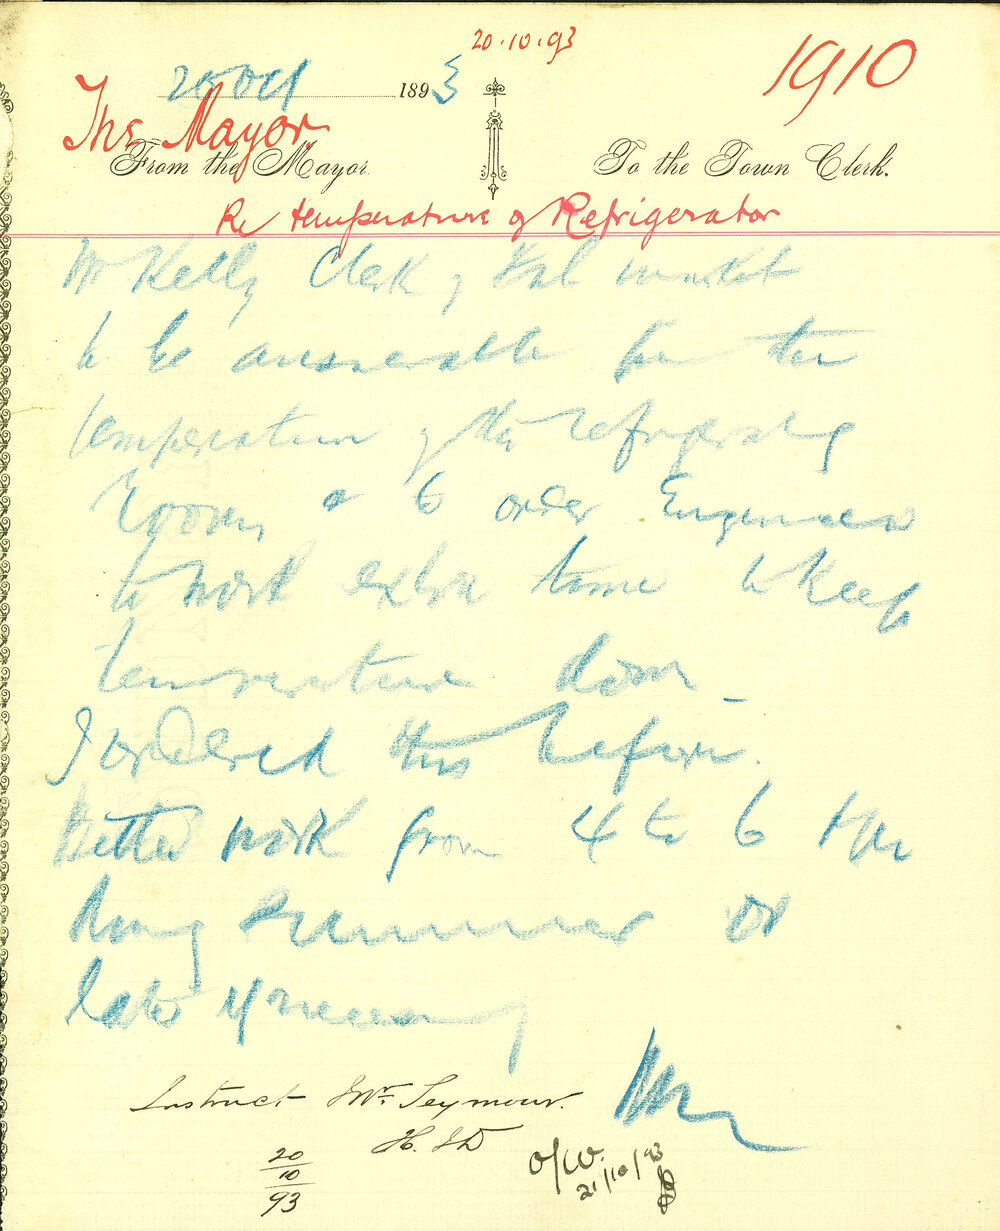 20.10.93
1910
20 Oct 1893
The Mayor
From the Mayor. To the Town Clerk.
Re temperature of Refrigerator
Mr Kelly Clerk of Fish market
to be answerable for the
temperature of the refrigerating
Rooms & to order Engineer
to work extra time to keep
temperature down _
I ordered this before.
Better work from 4 to 6 PM
during summer or
later if necessary
Instruct Mr Seymour.
20
10
93
O/W.
21/10/93